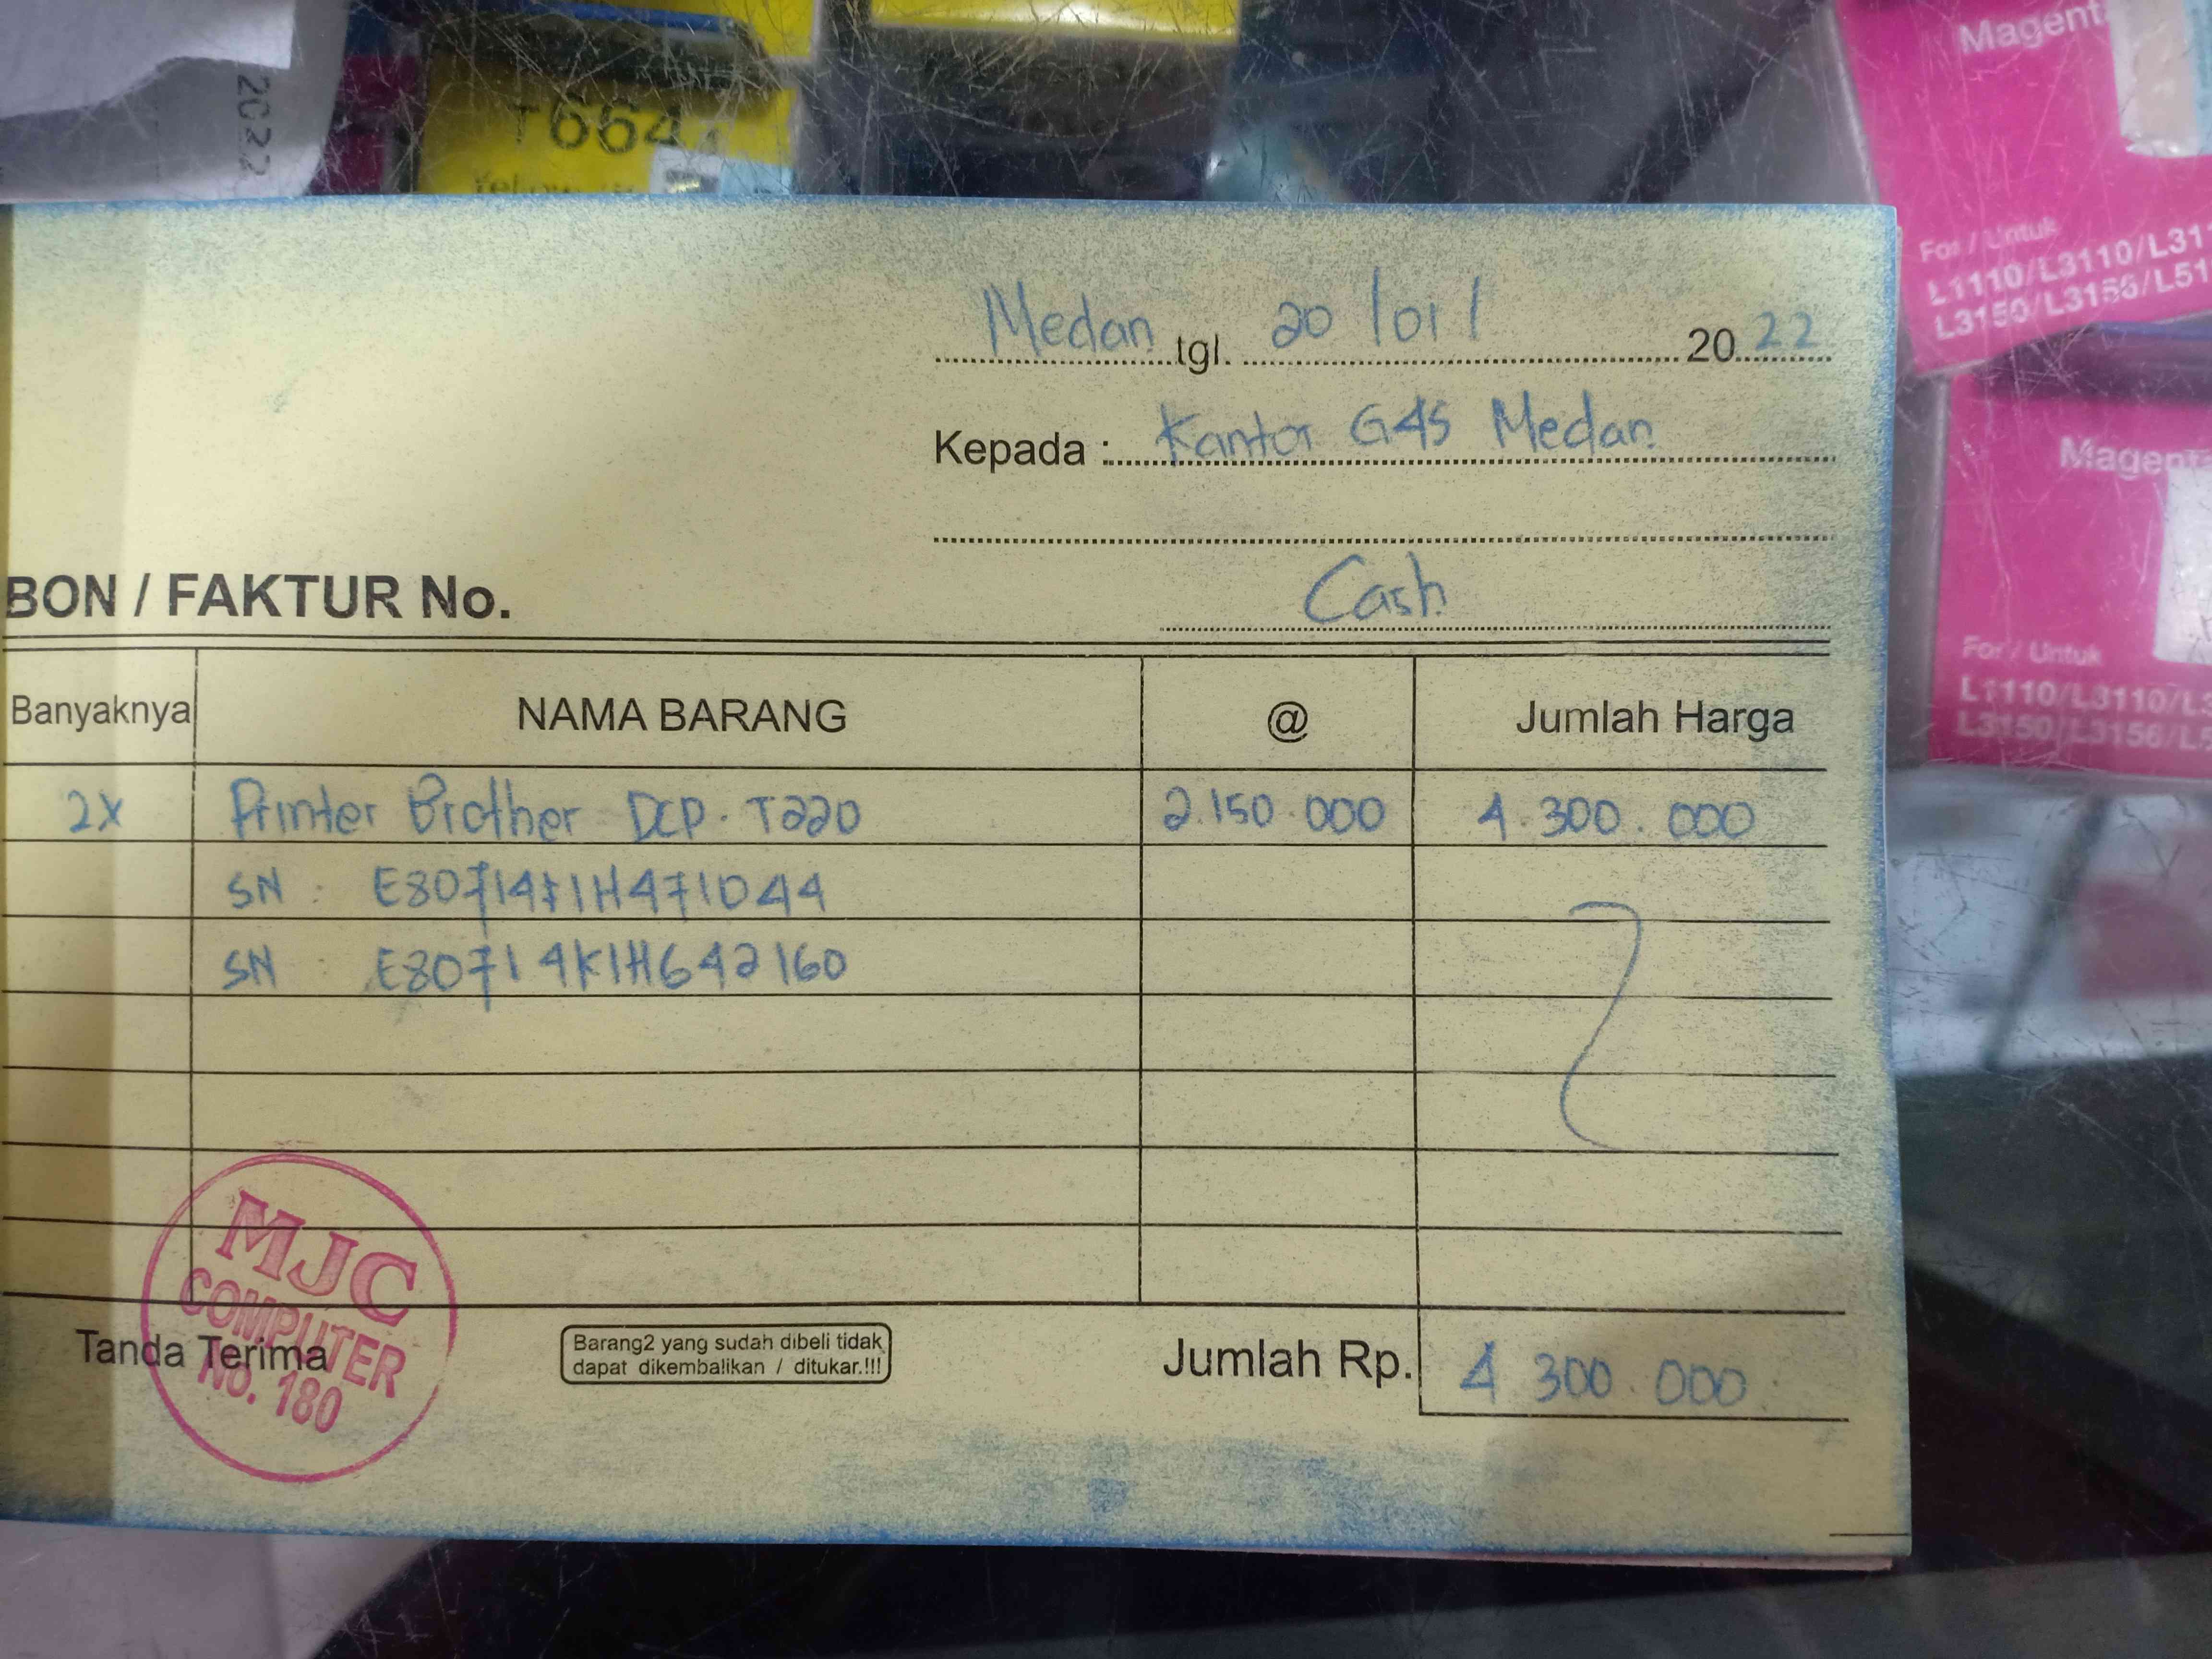 2022
T664
Yellow
Magent
For / Untuk
L1110/L3110/L31
L3150/L3156/L51
Medan tgl. 20/01/ 2022
Kepada : Kantor G4S Medan
Magent
Cash
BON / FAKTUR No.
For / Untuk
L1110/L3110/L3
L3150/L3156/L5
Banyaknya NAMA BARANG @ Jumlah Harga
2x Printer Brother DCP-T220 2.150.000 4.300.000
SN :
SN : E80714K1H642160
MJC
COMPUTER
No. 180
Tanda Terima
Barang2 yang sudah dibeli tidak
dapat dikembalikan / ditukar.!!!
Jumlah Rp. 4.300.000